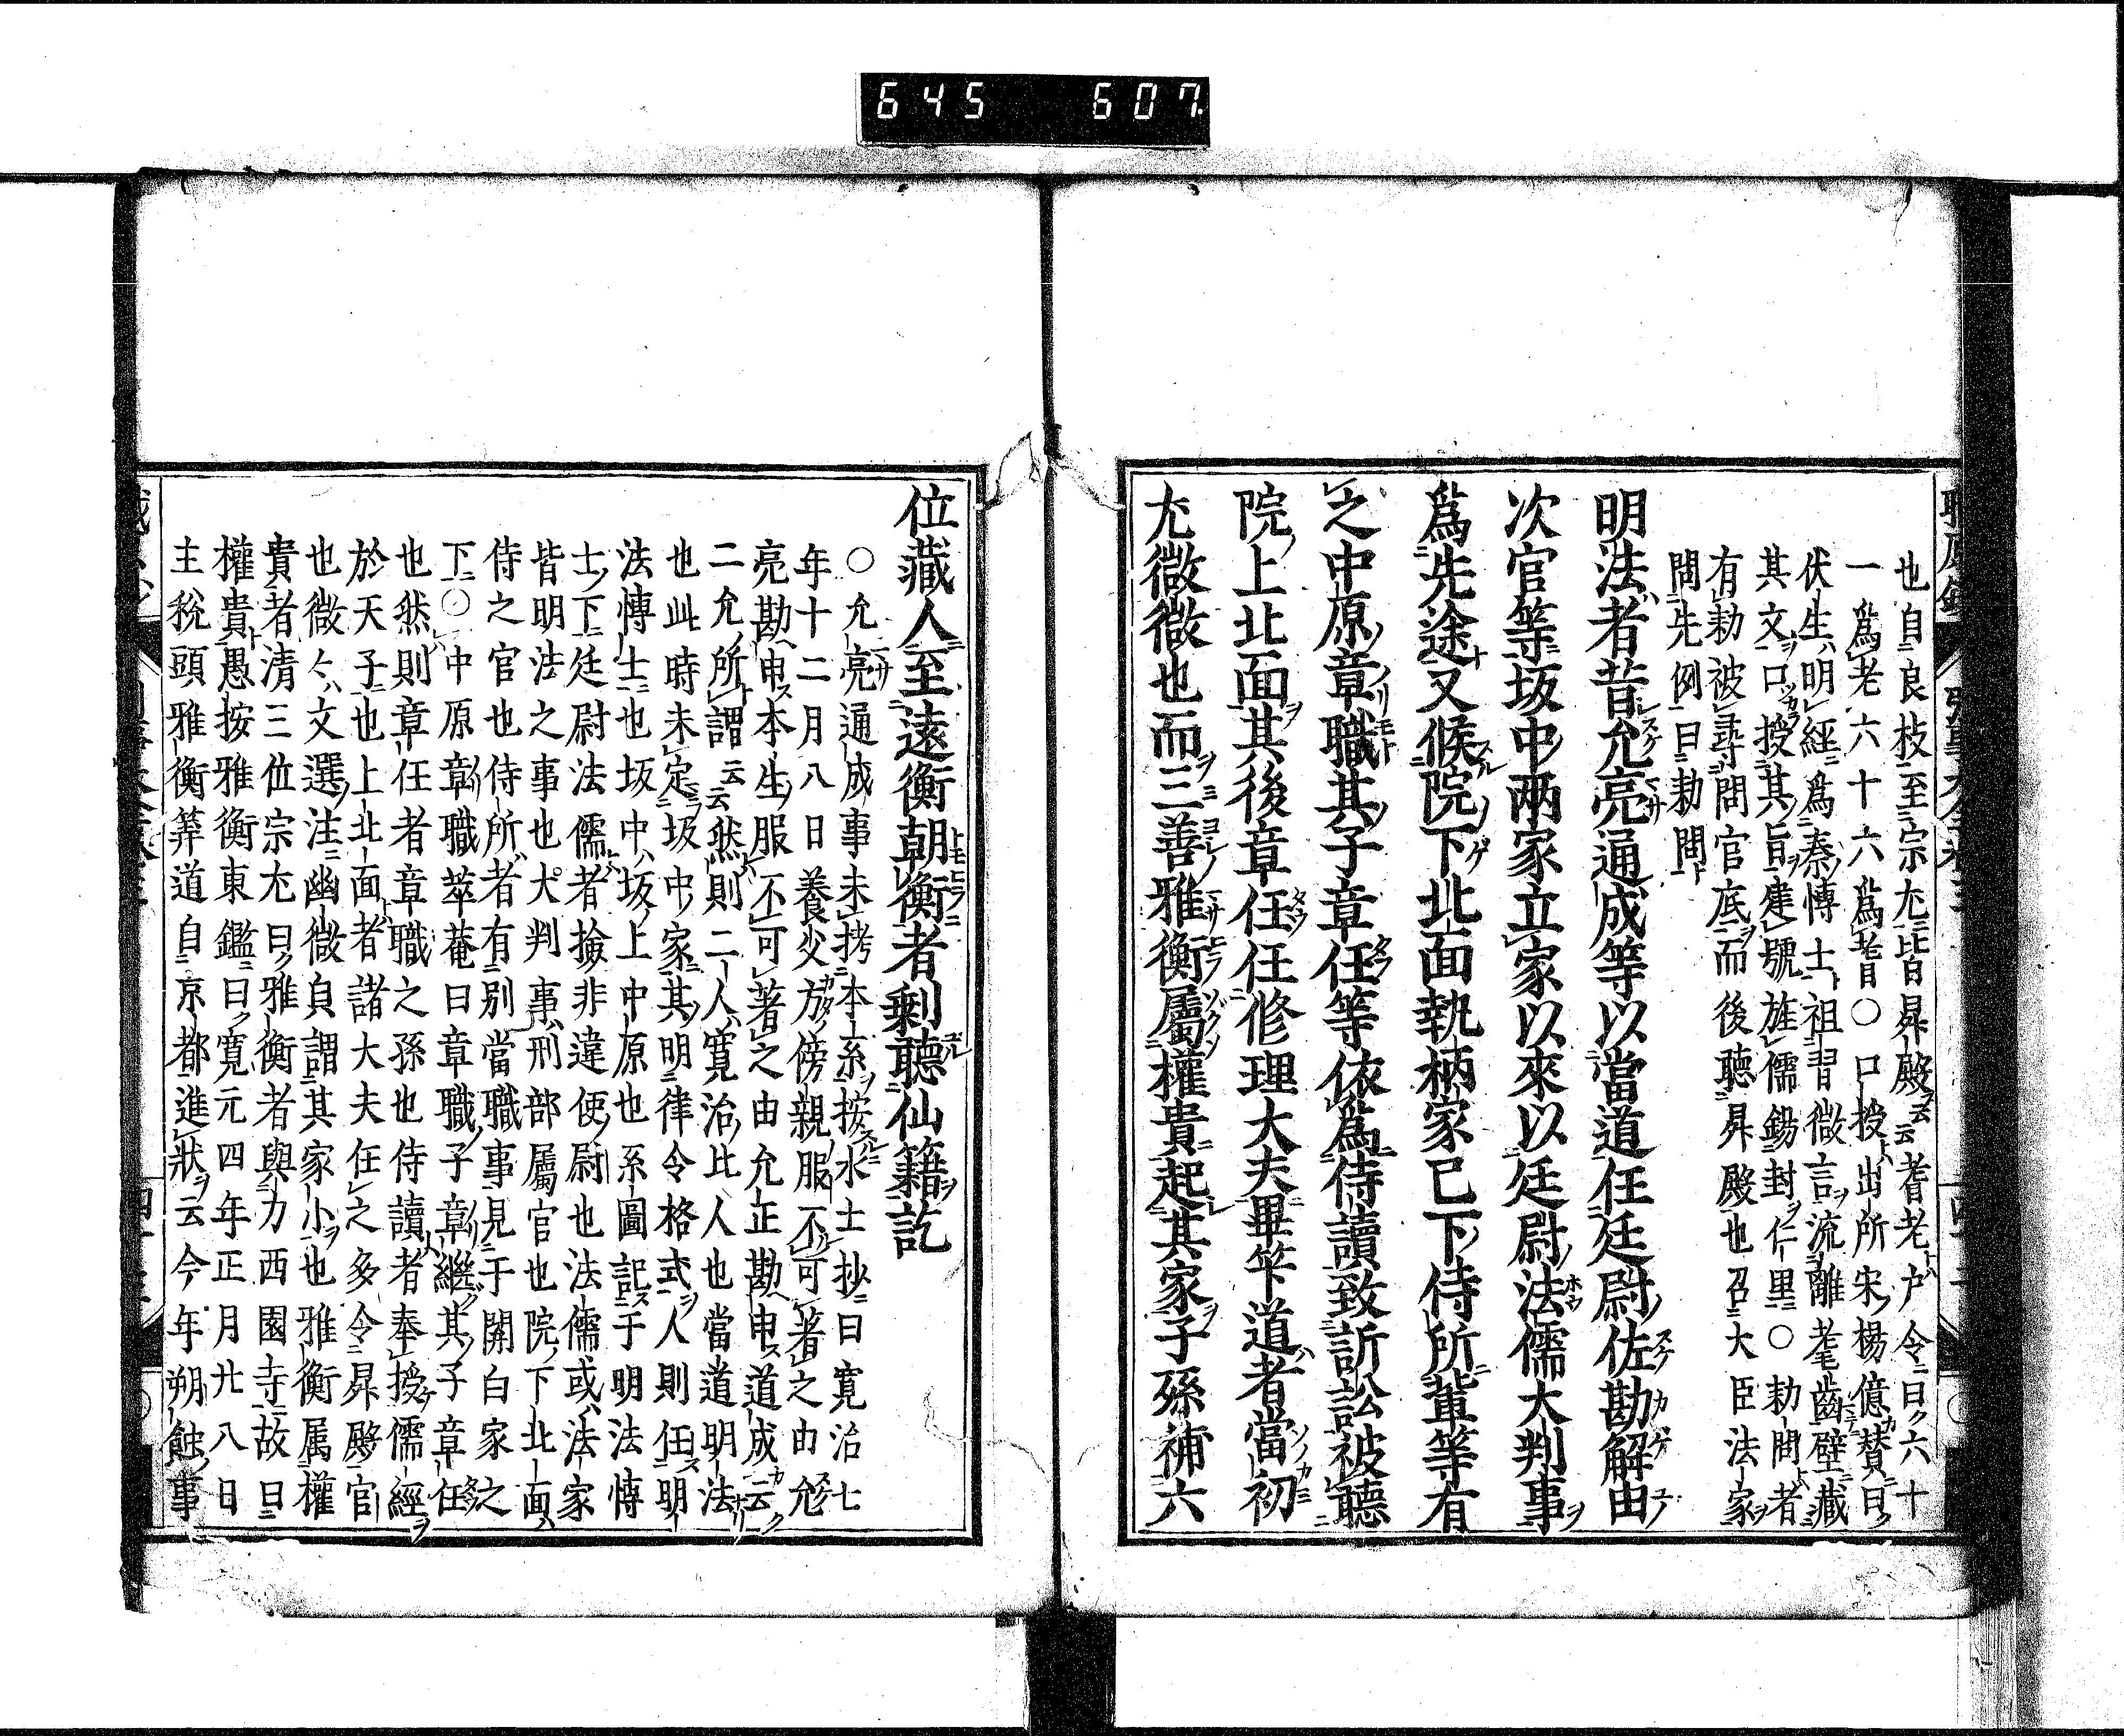 645 607
也自良枝至宗尤皆昇殿云云耆老戸令曰六十
一爲老六十六爲耆○口授出所宋楊億賛曰
伏生明經爲秦博士祖習微言流離耄齒壁藏
其文口授其旨建號旌儒錫封仁里○勅問者
有勅被尋問官底而後聽昇殿也召大臣法家
問先例曰勅問
明法者昔允亮通成等以當道任廷尉佐勘解由
次官等坂中兩家立家以來以廷尉法儒大判事
爲先途又候院下北面執柄家已下侍所輩等有
之中原章職其子章任等依爲侍讀致訴訟被聽
院上北面其後章任任修理大夫畢笇道者當初
尤微微也而三善雅衡屬權貴起其家子孫補六
位藏人至遠衡朝衡者剰聽仙籍訖
○允亮通成事未考本系按水士抄曰寛治七
年十二月八日養父方傍親服不可著之由允
亮勘申本生服不可著之由允正勘申道成云
二允所謂云云然則二人寛治比人也當道明法
也此時未定坂中家其明律令格式人則任明
法博士也坂中坂上中原也系圖記于明法博
士下廷尉法儒者撿非違使尉也法儒或法家
皆明法之事也大判事刑部屬官也院下北面
侍之官也侍所者有別當職事見于關白家之
下○中原章職萃菴曰章職子章繼其子章任
也然則章任者章職之孫也侍讀者奉授儒經
於天子也上北面者諸大夫任之多令昇殿官
也微々文選注幽微負謂其家小也雅衡属權
貴者清三位宗尤曰雅衡者與力西園寺故曰
權貴愚按雅衡東鑑曰寛元四年正月廿八日
主税頭雅衡筭道自京都進狀云今年朔蝕事